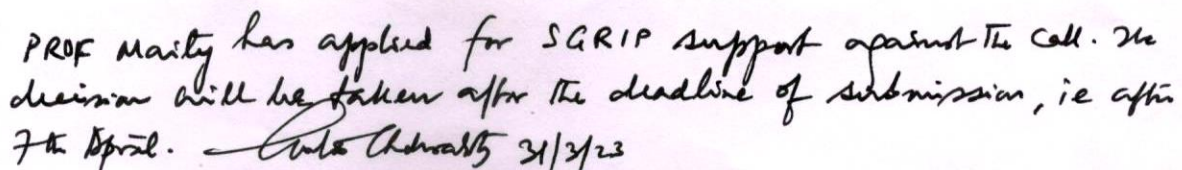 PROF Maity has applied for SGRIP support against the call. The
decision will be taken after the deadline of submission, ie after
7th April. 31/3/23